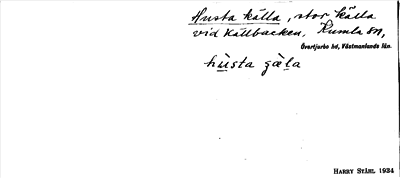 Husta källa, stor källa
vid Källbacken. Kumla sn,
Övertjurbo hd, Västmanlands län.
hùsta gæ̀la
HARRY STÅHL 1934